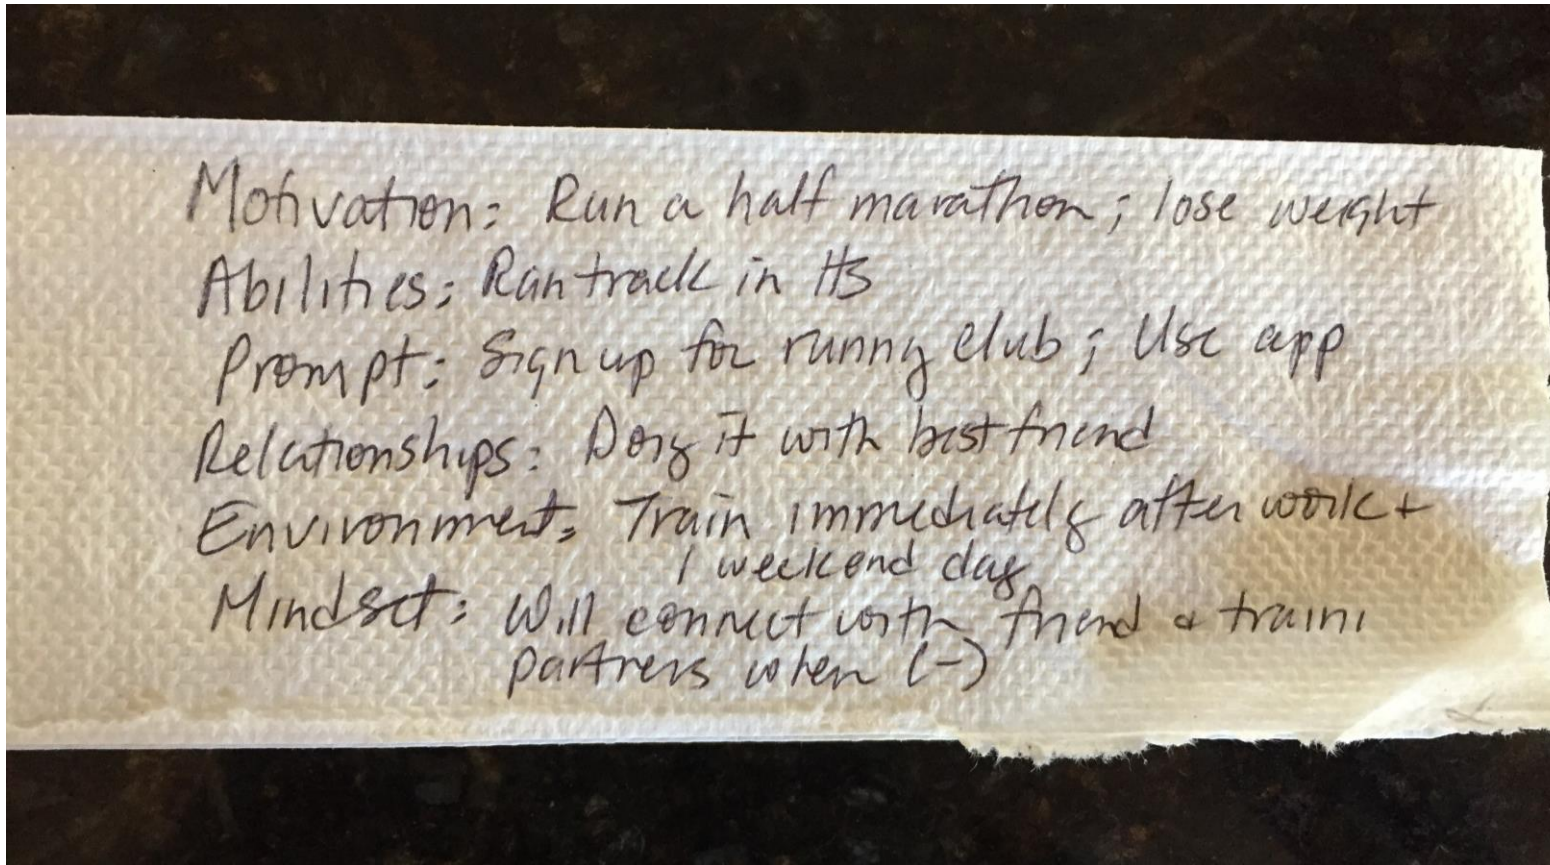 Motivation: Run a half marathon; lose weight
Abilities: Ran track in HS
Prompt: Sign up for runng club; Use app
Relationships: Doing it with best friend
Environment: Train immediately after work +
1 weekend day
Mindset: Will connect with friend & traini
partners when (-)